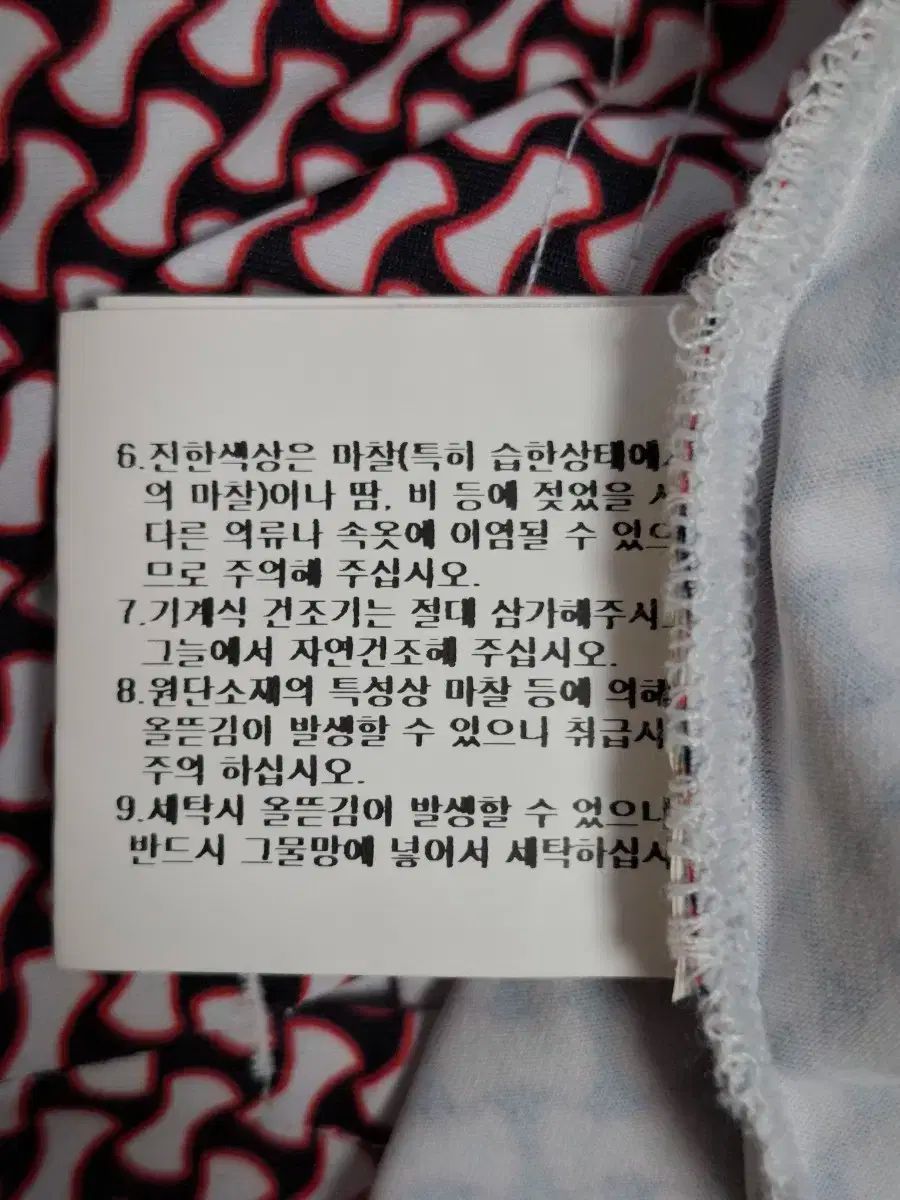 6.진한색상은 마찰(특히 습한상태에
의 마찰)이나 땀, 비 등에 젖었을
다른 의류나 속옷에 이염될 수 있으
므로 주의해 주십시오.
7.기계식 건조기는 절대 삼가해주시
그늘에서 자연건조해 주십시오.
8.원단소재의 특성상 마찰 등에 의해
올뜯김이 발생할 수 있으니 취급시
주의 하십시오.
9.세탁시 올뜯김이 발생할 수 있으니
반드시 그물망에 넣어서 세탁하십시